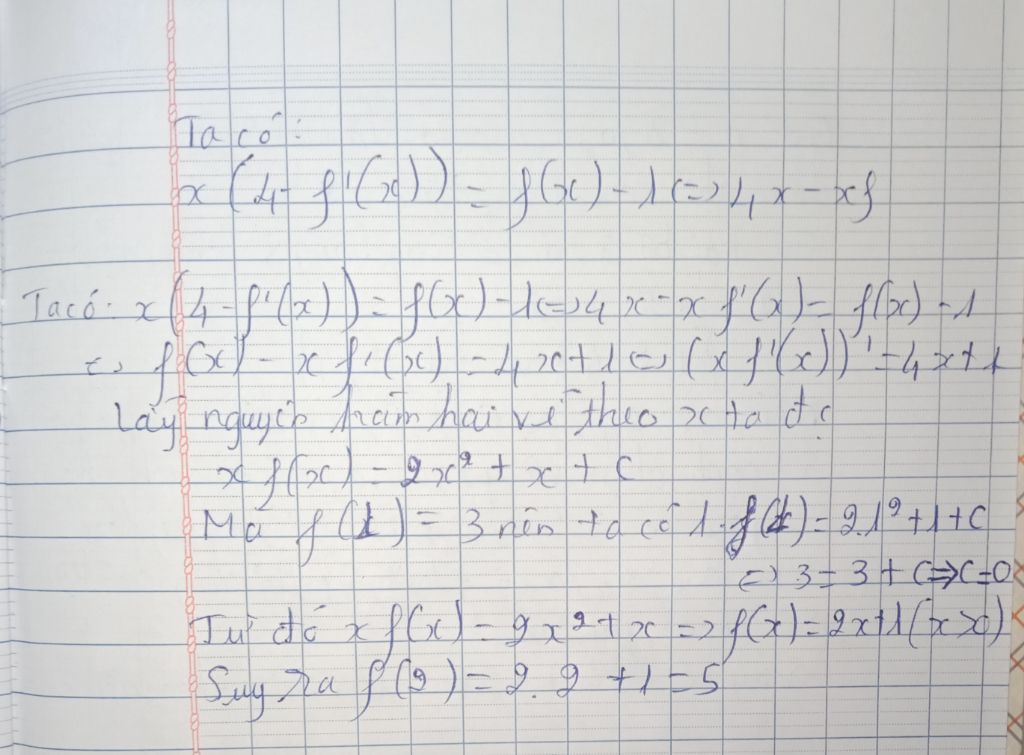 Ta có:
x (4 - f'(x)) = f(x) - 1 <=> 4x - xf
Ta có: x (4 - f'(x)) = f(x) - 1 <=> 4x - x f'(x) = f(x) - 1
<=> f(x) - x f'(x) = 4x + 1 <=> (x f'(x))' = 4x + 1
Lấy nguyên hàm hai vế theo x ta đc
x f(x) = 2x² + x + C
Mà f(1) = 3 nên ta có 1. f(1) = 2.1² + 1 + C
<=> 3 = 3 + C => C = 0
Từ đó x f(x) = 2x² + x => f(x) = 2x + 1 (x > 0)
Suy ra f(2) = 2.2 + 1 = 5